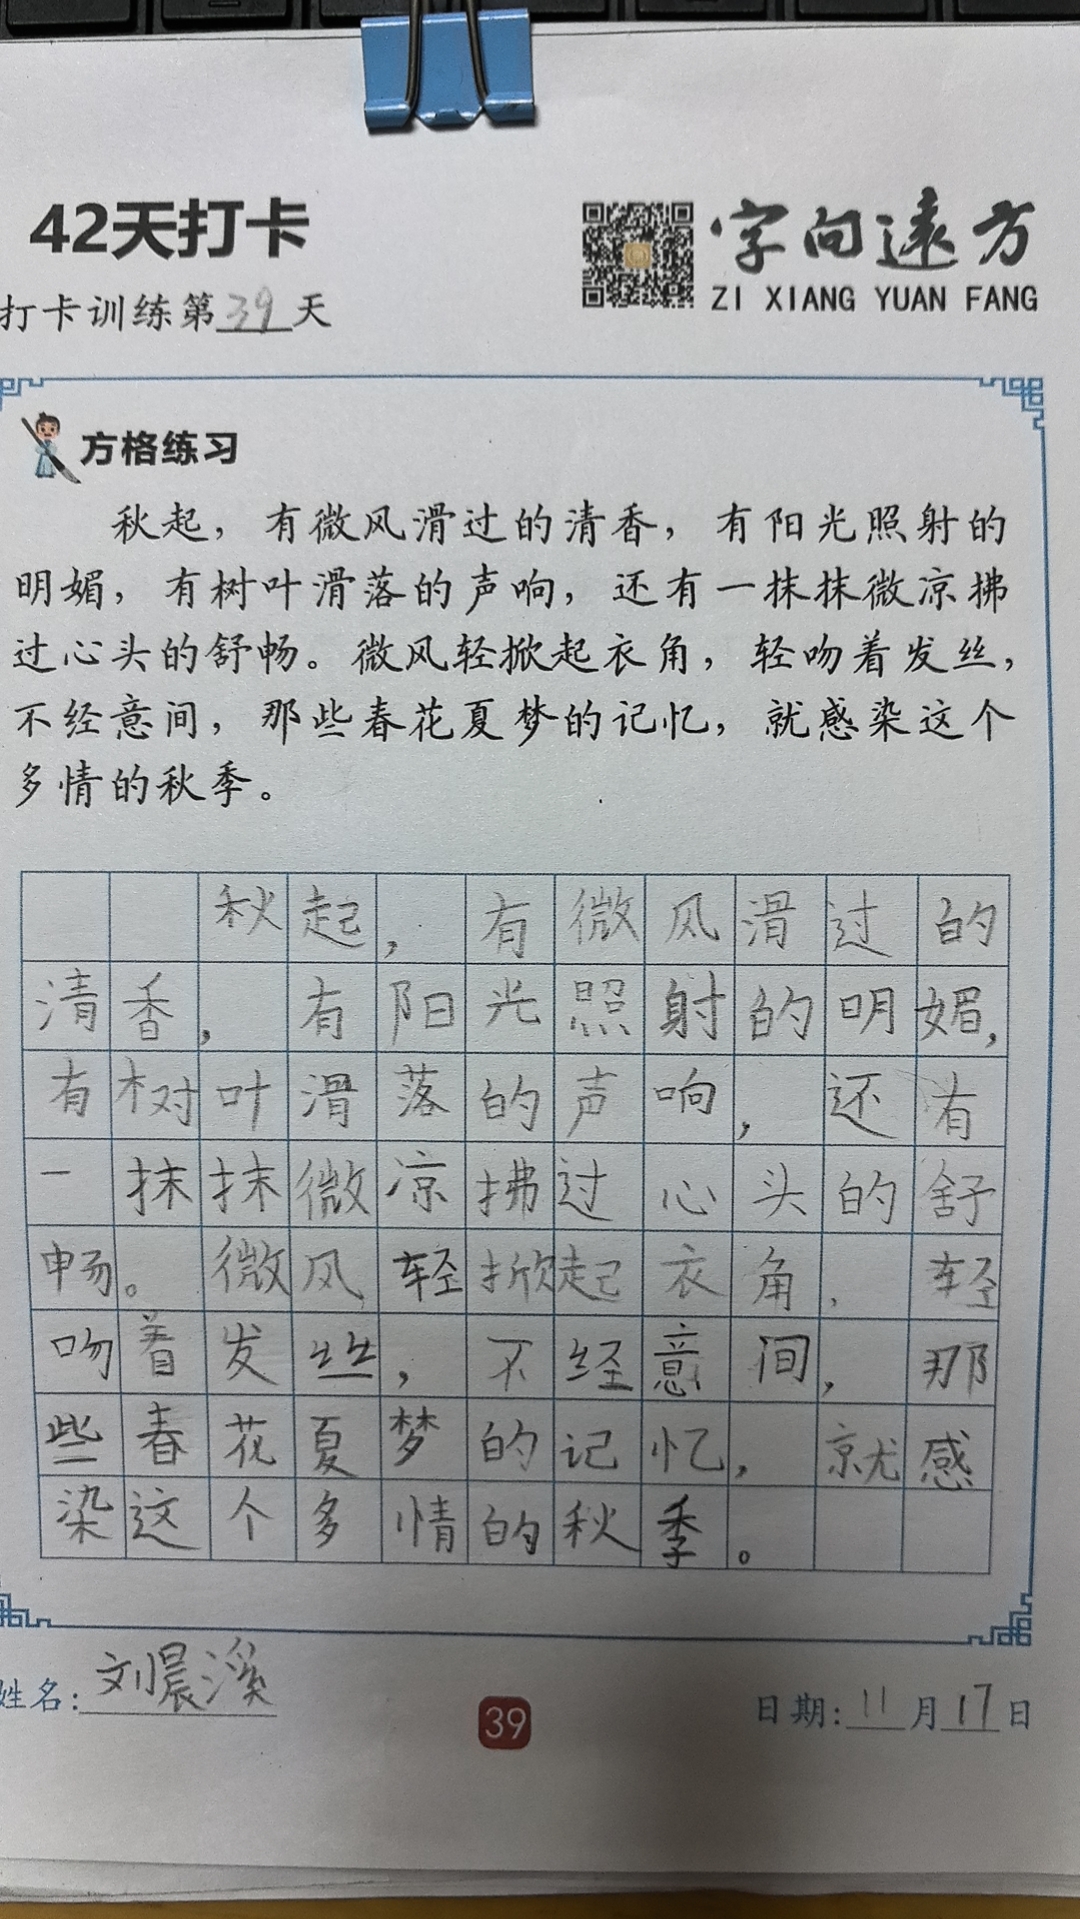 42天打卡
字向远方
ZI XIANG YUAN FANG
打卡训练第39天
方格练习
秋起，有微风滑过的清香，有阳光照射的
明媚，有树叶滑落的声响，还有一抹抹微凉拂
过心头的舒畅。微风轻掀起衣角，轻吻着发丝，
不经意间，那些春花夏梦的记忆，就感染这个
多情的秋季。
秋起，有微风滑过的
清香，有阳光照射的明媚，
有树叶滑落的声响，还有
一抹抹微凉拂过心头的舒
畅。微风轻掀起衣角，轻
吻着发丝，不经意间，那
些春花夏梦的记忆，就感
染这个多情的秋季。
姓名：刘晨溪
39
日期：11月17日